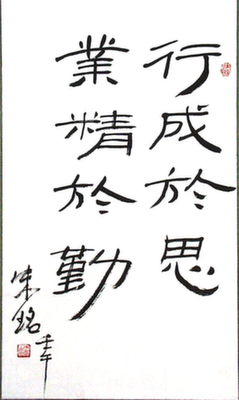 行成於思
業精於勤
壬午